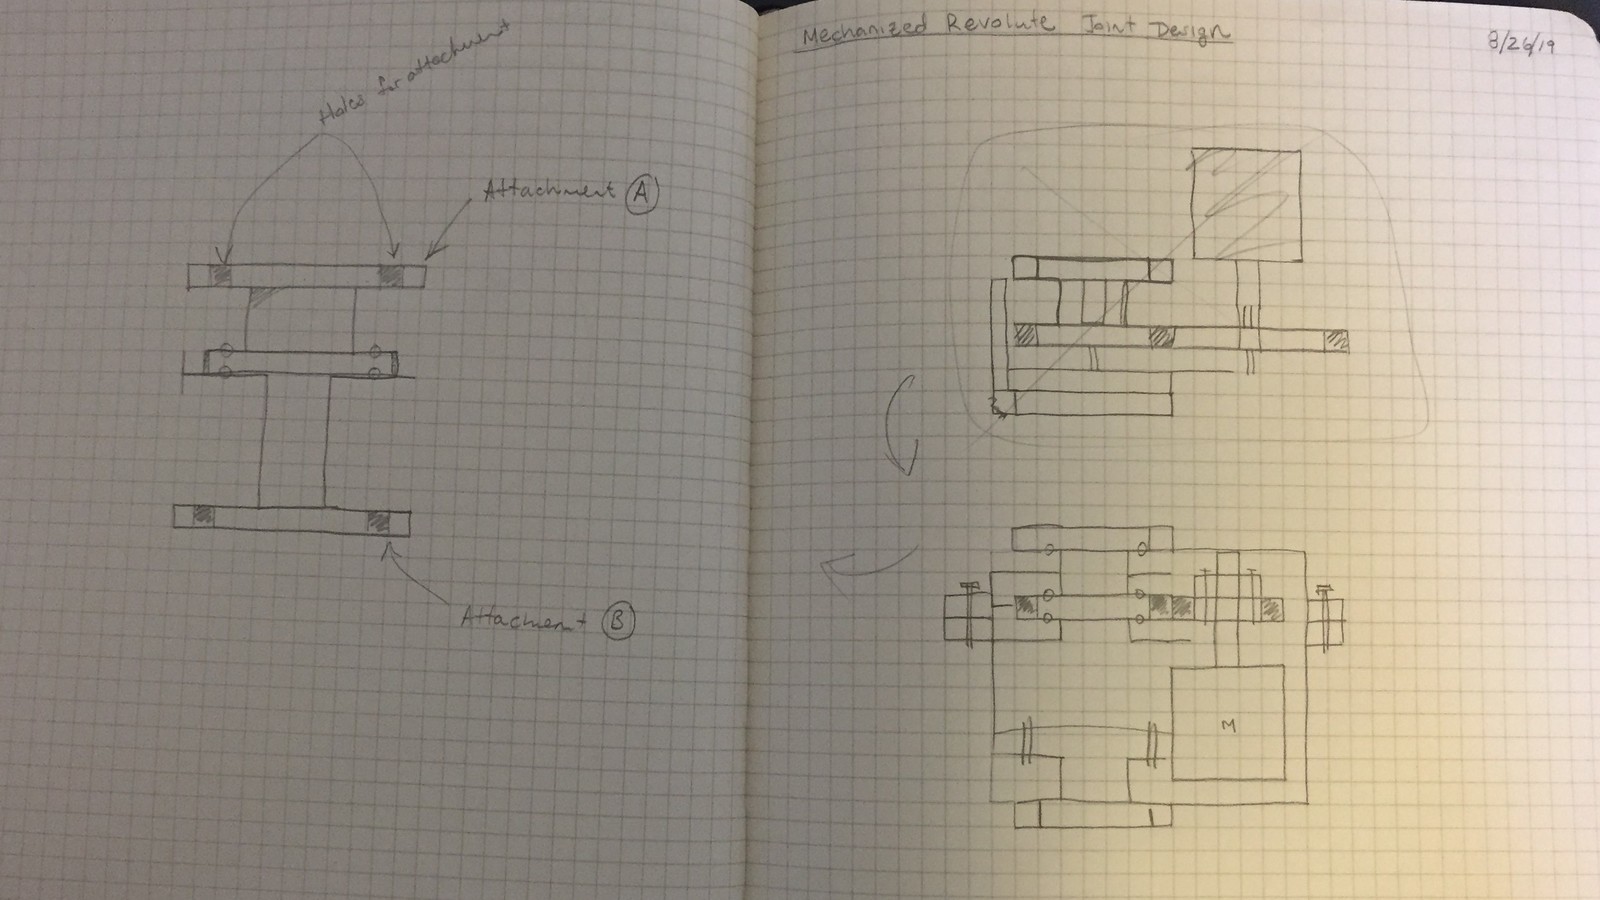 Holes for attachment
Attachment A
Attachment B
Mechanized Revolute Joint Design
8/26/19
M